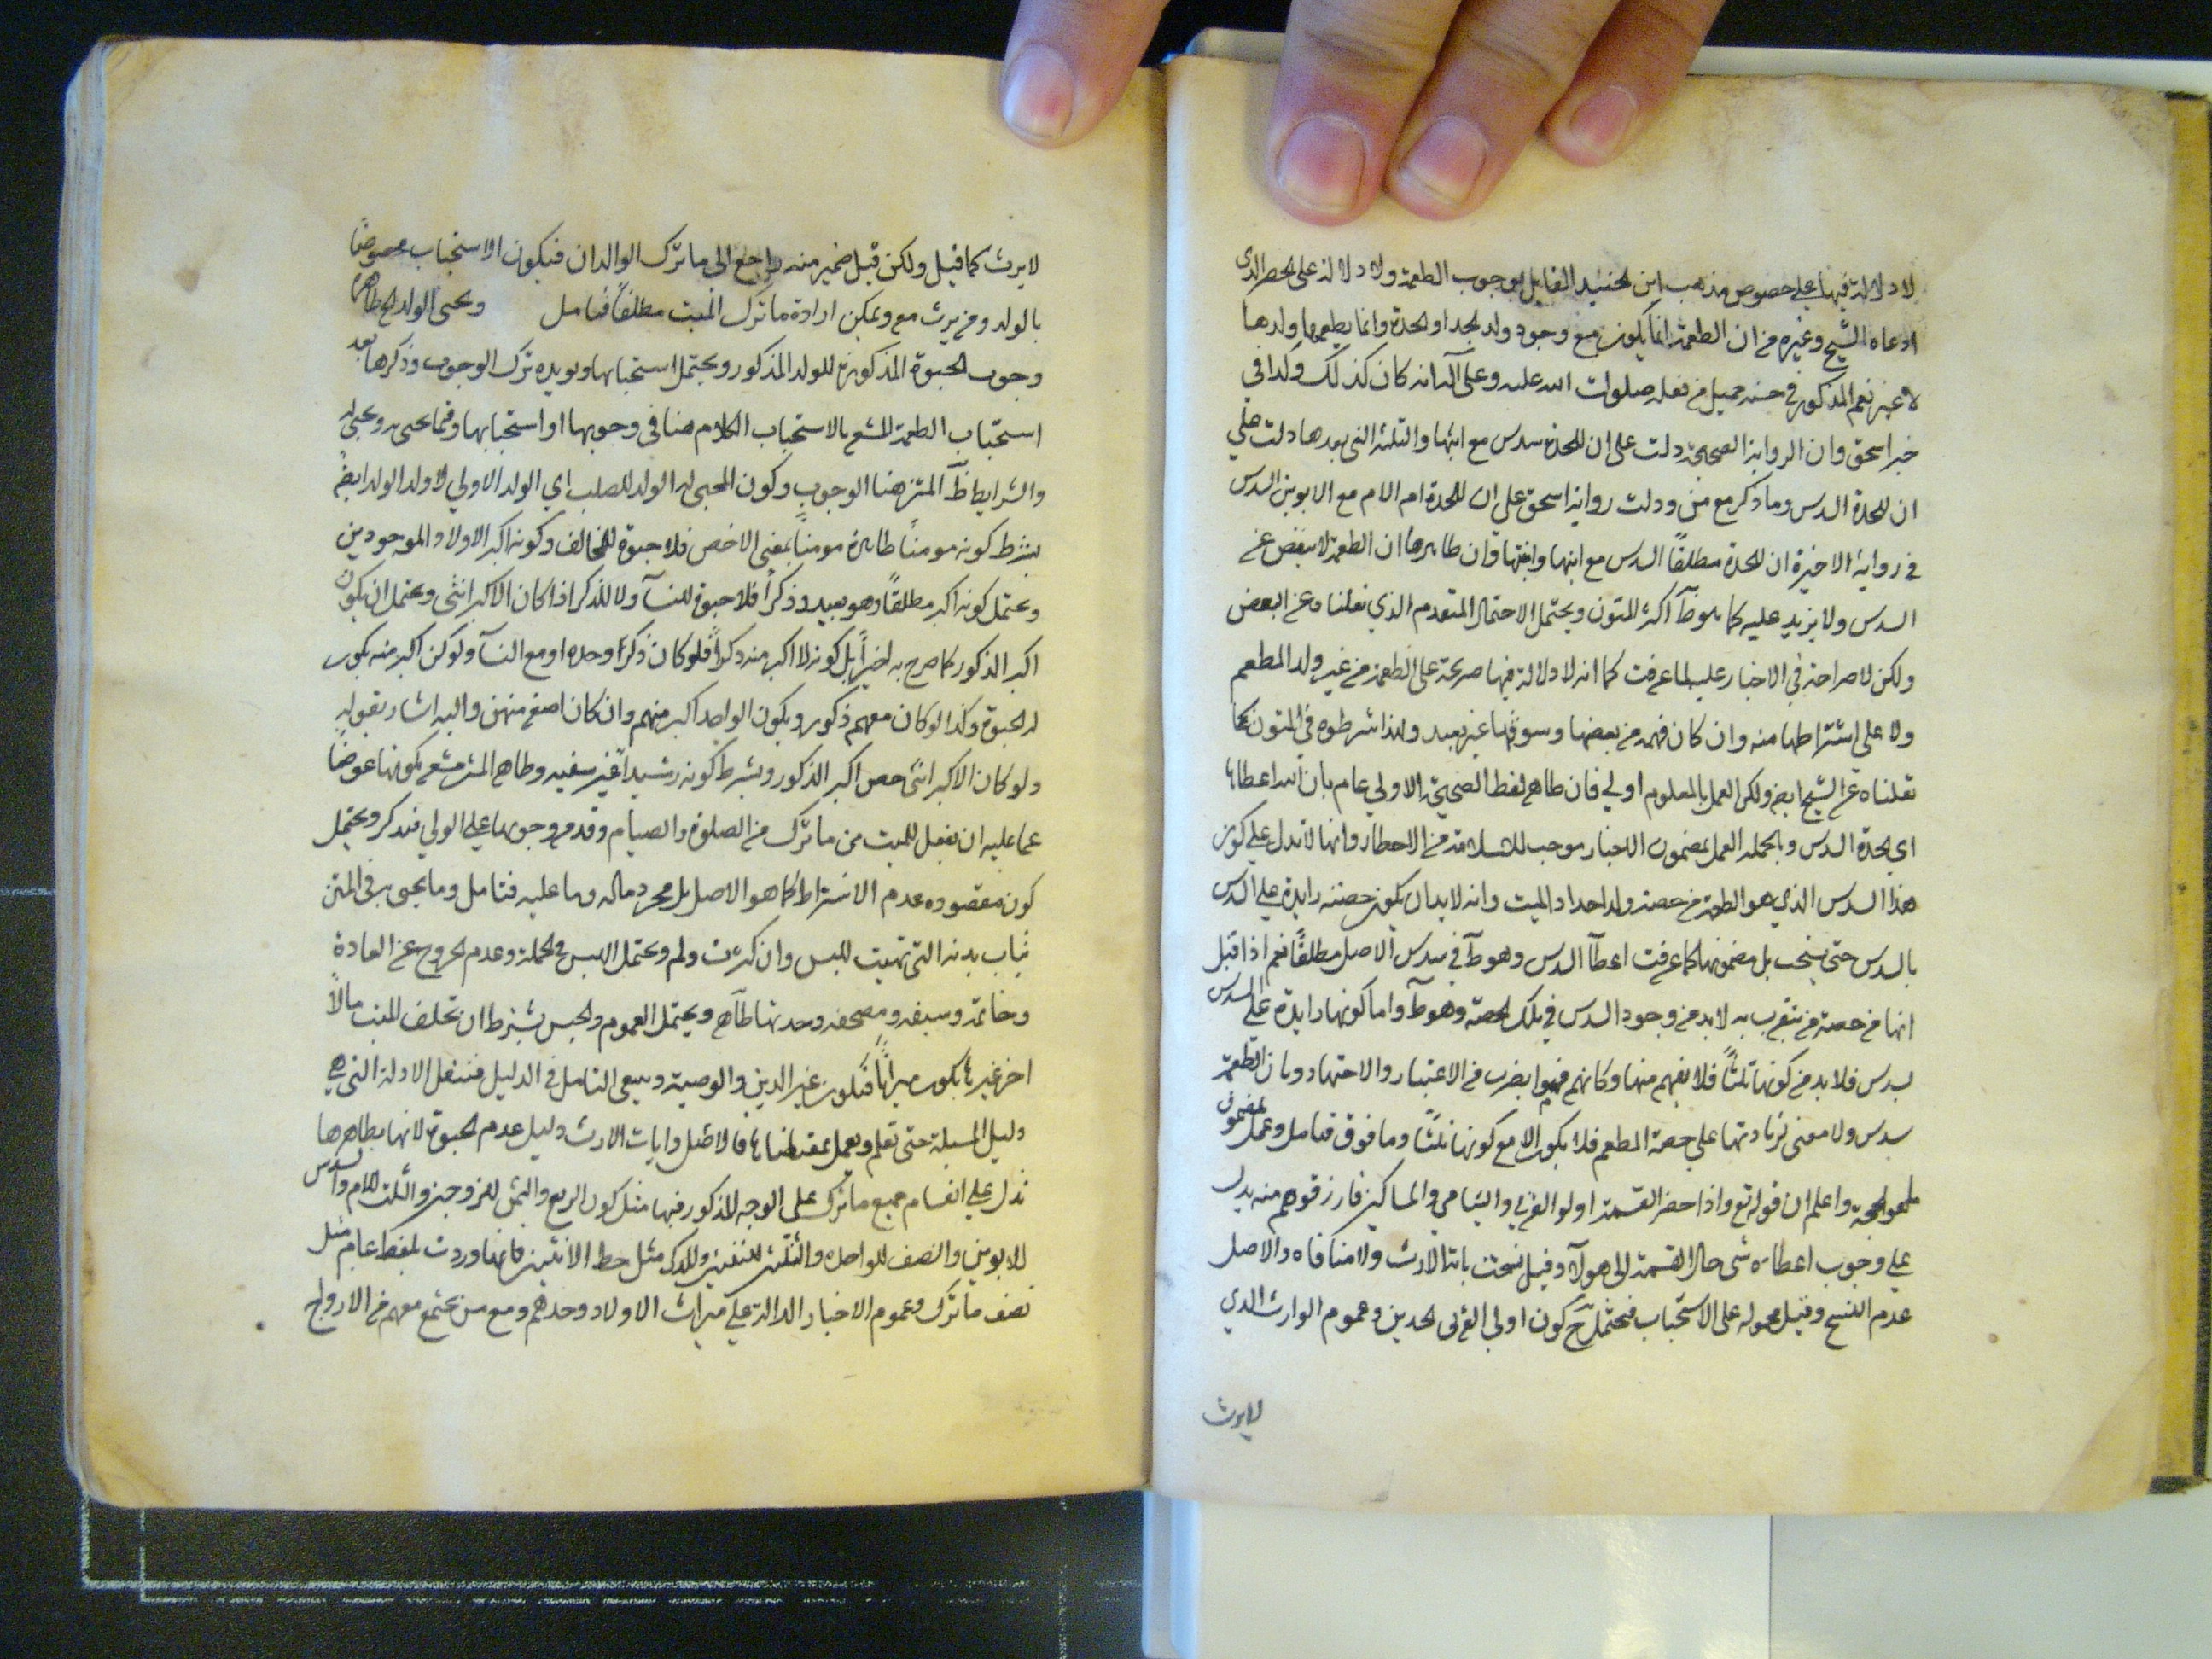 لا دلالة فيها على خصوص مذهب ابن الجنيد القايل بوجوب الطعمة ولا دلالة على الحصر الذى
ادعاه الشيخ وغيره من ان الطعمة انما يكون مع وجود ولد الجد او الجدة وانما يطعمها ولدها
لا غير نعم المذكور في حسنه جميل من فعله صلوات الله عليه وعلى آله انه كان كذلك وكذا في
خبر اسحق وان الرواية الصحيحة دلت على ان للجدة سدس مع ابنها والثلثة التى بعدها دلت على
ان للجدة السدس وما ذكر مع من ودلت رواية اسحق على ان للجدة ام الام مع الابوين السدس
في رواية الاخيرة ان للجدة مطلقا السدس مع ابنها وابنتها وان ظاهرها ان الطعمة لا ينقص عن
السدس ولا يزيد عليه كما هو ظ اكثر المتون ويحتمل الاحتمال المتقدم الذي نقلنا وعن البعض
ولكن لا صراحة في الاخبار عليه لما عرفت كما انه لا دلالة فيها صريحة على الطعمة من غير ولد المطعم
ولا على اشتراطها منه وان كان فهمه من بعضها وسوقها غير بعيد ولهذا شرطوه في المتون كما
نقلناه عن الشيخ ايضا ولكن العمل بالمعلوم اولى فان ظاهر لفظ الصحيحة الاولى عام بان الله اعطاها
اي الجدة السدس وبالجملة العمل بمضمون الاخبار موجب للسلامة من الاخطار وانها لا تدل على كون
هذا السدس الذي هو الطعمة من حصة ولد اجداد الميت وانه لابد ان يكون حصته زايدة على السدس
بالسدس حتى يستحب بل مضمونها كما عرفت اعطاء السدس وهو ظ في سدس الاصل مطلقا نعم اذا قيل
انها من حصة من يتقرب به لابد من وجود السدس في تلك الحصة وهو ظ واما كونها زايدة على السدس
بسدس فلابد من كونها ثلثا فلا يفهم منها وكانهم فهموا بضرب من الاعتبار والاجتهاد وبان الطعمة
سدس ولا معنى لزيادتها على حصة المطعم فلا يكون الا مع كونها ثلثا وما فوق فتامل وعمل بمضمون
ما هو الحجة واعلم ان قوله تع واذا حضر القسمة اولوا القربى واليتامى والمساكين فارزقوهم منه يدل
على وجوب اعطاء شى حال القسمة الى هولاء وقيل نسخت باية الارث ولا منافاه والاصل
عدم النسخ وقيل محموله على الاستحباب فيحتمل ح كون اولى القربى الجدين وعموم الوارث الذي
لا يرث
لا يرث كما قيل ولكن قيل ضمير منه راجع الى ما ترك الوالدان فيكون الاستحباب مخصوصا
بالولد ومن يرث مع ويمكن ارادة ما ترك الميت مطلقا فتامل ويحبى الولد الخ ظاهره
وجوب الحبوة المذكورة للولد المذكور ويحتمل استحبابها ويويده ترك الوجوب وذكرها بعد
استحباب الطعمة المشعر بالاستحباب الكلام هنا في وجوبها او استحبابها وفيما يحبى به ويحبى له
والشرايط ظ المتن هنا الوجوب وكون المحبى له الولد للصلب اي الولد الاولى لا ولد الولد ايضا
بشرط كونه مومنا ظاهره مومنا بمعنى الاخص فلا حبوة للمخالف وكونه اكبر الاولاد الموجودين
ويحتمل كونه اكبر مطلقا وهو بعيد وذكرا فلا حبوة للنساء ولا للذكر اذا كان الاكبر انثى ويحتمل ان يكون
اكبر الذكور كما صرح به اخيرا بل كونه لا اكبر منه ذكرا فلو كان ذكرا وحده او مع النساء ولو كن اكبر منه يكون
له الحبوة وكذا لو كان معهم ذكور ويكون الواحد اكبر منهم وان كان اصغر منهن واليه اشار بقوله
ولو كان الاكبر انثى خص اكبر الذكور وبشرط كونه رشيدا غير سفيه وظاهر المتن مشعر بكونها عوضا
عما عليه ان يفعل للميت من ما ترك من الصلوة والصيام وقد مر وجوبها على الولي فتذكر ويحتمل
كون مقصوده عدم الاشتراط كما هو الاصل بل مجرد ماله وما عليه فتامل وما يحبى به في المتن
ثياب بدنه التى تهيت للبس وان كثرت ولم ويحتمل اللبس في الجملة وعدم الخروج عن العادة
وخاتمه وسيفه ومصحفه وحدتها ظاهر ويحتمل العموم والجنس بشرط ان تخلف الميت مالا
اخر غيرها يكون ميراثا فتكون غير الدين والوصية وينبغى التامل في الدليل فننقل الادلة التي هي
دليل المسئلة حتى تعلم ويعمل بمقتضاها فالاصل وايات الارث دليل عدم الحبوة لانها بظاهرها
تدل على انقسام جميع ما ترك على الوجه المذكور فيها مثل كون الربع والثمن للزوجين والثلث للام والسدس
للابوين والنصف للواحدة والثلثين للثنتين وللذكر مثل حظ الانثيين فانها وردت بلفظ عام مثل
نصف ما ترك وعموم الاخبار الدالة على ميراث الاولاد وحدهم ومع من يجتمع معهم من الازواج